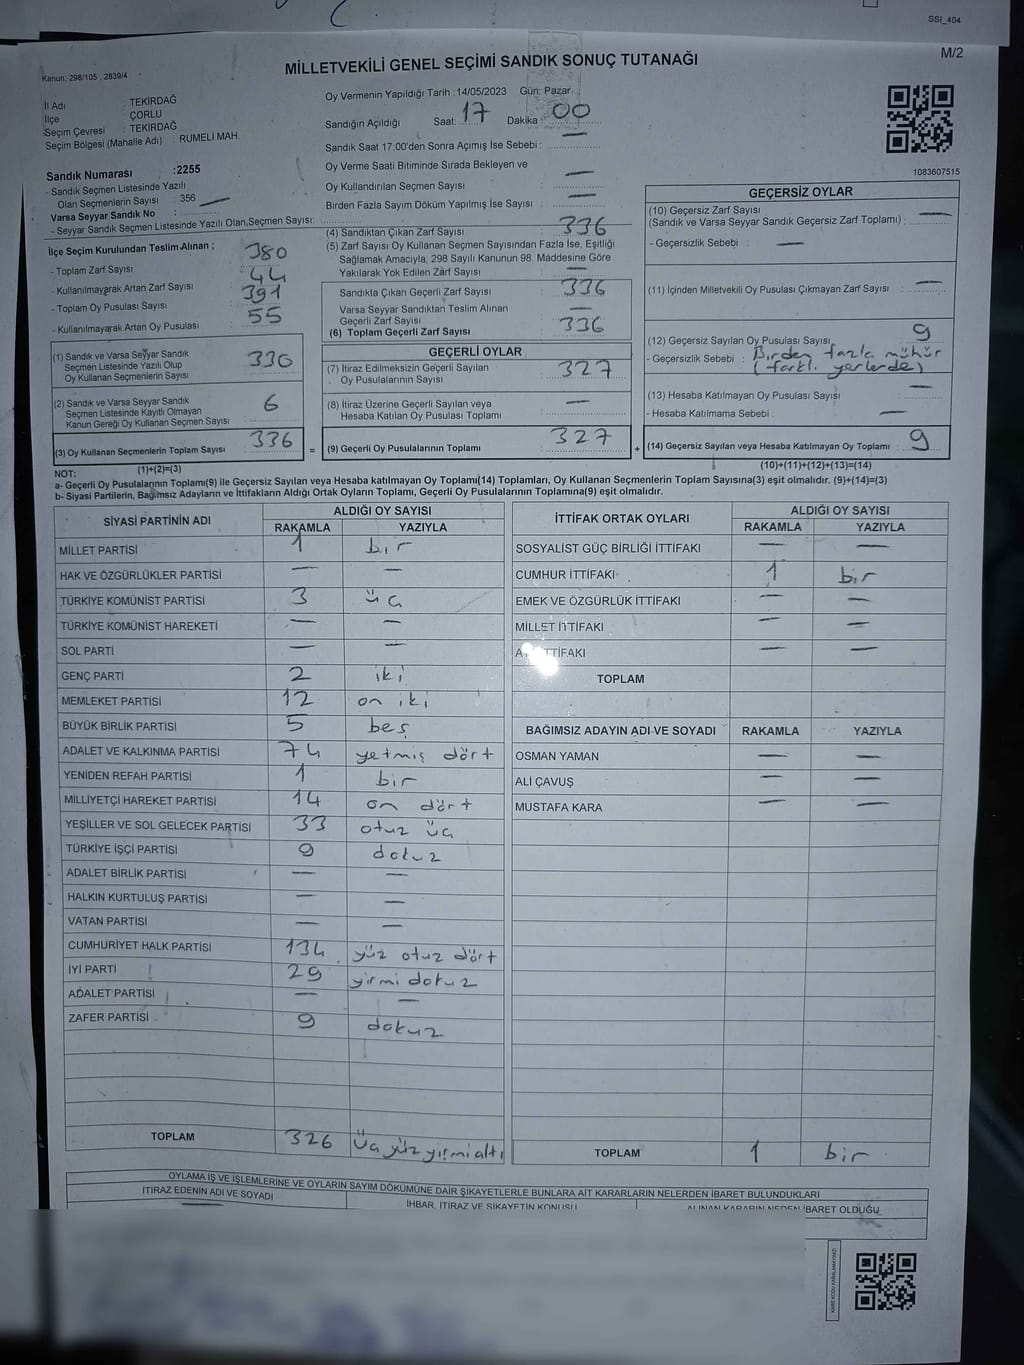 SSI_404
M/2
Kanun: 298/105 , 2839/4
MİLLETVEKİLİ GENEL SEÇİMİ SANDIK SONUÇ TUTANAĞI
İl Adı : TEKİRDAĞ
İlçe : ÇORLU
Seçim Çevresi : TEKİRDAĞ
Seçim Bölgesi (Mahalle Adı) : RUMELİ MAH.
Oy Vermenin Yapıldığı Tarih :14/05/2023 Gün: Pazar
Sandığın Açıldığı Saat: 17 Dakika : 00
Sandık Saat 17:00'den Sonra Açımış İse Sebebi : —
Oy Verme Saati Bitiminde Sırada Bekleyen ve
Oy Kullandırılan Seçmen Sayısı : —
Birden Fazla Sayım Döküm Yapılmış İse Sayısı : —
1083607515
Sandık Numarası :2255
- Sandık Seçmen Listesinde Yazılı
Olan Seçmenlerin Sayısı : 356 —
Varsa Seyyar Sandık No :
- Seyyar Sandık Seçmen Listesinde Yazılı Olan Seçmen Sayısı:
İlçe Seçim Kurulundan Teslim Alınan ;
- Toplam Zarf Sayısı : 380
- Kullanılmayarak Artan Zarf Sayısı : 44
- Toplam Oy Pusulası Sayısı : 391
- Kullanılmayarak Artan Oy Pusulası : 55
(1) Sandık ve Varsa Seyyar Sandık
Seçmen Listesinde Yazılı Olup
Oy Kullanan Seçmenlerin Sayısı : 330
(2) Sandık ve Varsa Seyyar Sandık
Seçmen Listesinde Kayıtlı Olmayan
Kanun Gereği Oy Kullanan Seçmen Sayısı : 6
(3) Oy Kullanan Seçmenlerin Toplam Sayısı : 336
(1)+(2)=(3)
(4) Sandıktan Çıkan Zarf Sayısı : 336
(5) Zarf Sayısı Oy Kullanan Seçmen Sayısından Fazla İse, Eşitliği
Sağlamak Amacıyla; 298 Sayılı Kanunun 98. Maddesine Göre
Yakılarak Yok Edilen Zarf Sayısı : —
Sandıkta Çıkan Geçerli Zarf Sayısı : 336
Varsa Seyyar Sandıktan Teslim Alınan
Geçerli Zarf Sayısı : —
(6) Toplam Geçerli Zarf Sayısı : 336
GEÇERLİ OYLAR
(7) İtiraz Edilmeksizin Geçerli Sayılan
Oy Pusulalarının Sayısı : 327
(8) İtiraz Üzerine Geçerli Sayılan veya
Hesaba Katılan Oy Pusulası Toplamı : —
= (9) Geçerli Oy Pusulalarının Toplamı : 327
GEÇERSİZ OYLAR
(10) Geçersiz Zarf Sayısı
(Sandık ve Varsa Seyyar Sandık Geçersiz Zarf Toplamı) : —
- Geçersizlik Sebebi : —
(11) İçinden Milletvekili Oy Pusulası Çıkmayan Zarf Sayısı : —
(12) Geçersiz Sayılan Oy Pusulası Sayısı : 9
- Geçersizlik Sebebi : Birden fazla mühür
(farklı yerlerde)
(13) Hesaba Katılmayan Oy Pusulası Sayısı : —
- Hesaba Katılmama Sebebi : —
+ (14) Geçersiz Sayılan veya Hesaba Katılmayan Oy Toplamı : 9
(10)+(11)+(12)+(13)=(14)
NOT:
a- Geçerli Oy Pusulalarının Toplamı(9) ile Geçersiz Sayılan veya Hesaba katılmayan Oy Toplamı(14) Toplamları, Oy Kullanan Seçmenlerin Toplam Sayısına(3) eşit olmalıdır. (9)+(14)=(3)
b- Siyasi Partilerin, Bağımsız Adayların ve İttifakların Aldığı Ortak Oyların Toplamı, Geçerli Oy Pusulalarının Toplamına(9) eşit olmalıdır.
SİYASİ PARTİNİN ADI ALDIĞI OY SAYISI
RAKAMLA YAZIYLA
MİLLET PARTİSİ 1 bir
HAK VE ÖZGÜRLÜKLER PARTİSİ — —
TÜRKİYE KOMÜNİST PARTİSİ 3 üç
TÜRKİYE KOMÜNİST HAREKETİ — —
SOL PARTİ — —
GENÇ PARTİ 2 iki
MEMLEKET PARTİSİ 12 on iki
BÜYÜK BİRLİK PARTİSİ 5 beş
ADALET VE KALKINMA PARTİSİ 74 yetmiş dört
YENİDEN REFAH PARTİSİ 1 bir
MİLLİYETÇİ HAREKET PARTİSİ 14 on dört
YEŞİLLER VE SOL GELECEK PARTİSİ 33 otuz üç
TÜRKİYE İŞÇİ PARTİSİ 9 dokuz
ADALET BİRLİK PARTİSİ — —
HALKIN KURTULUŞ PARTİSİ — —
VATAN PARTİSİ — —
CUMHURİYET HALK PARTİSİ 134 yüz otuz dört
İYİ PARTİ 29 yirmi dokuz
ADALET PARTİSİ — —
ZAFER PARTİSİ 9 dokuz
TOPLAM 326 üç yüz yirmi altı
İTTİFAK ORTAK OYLARI ALDIĞI OY SAYISI
RAKAMLA YAZIYLA
SOSYALİST GÜÇ BİRLİĞİ İTTİFAKI — —
CUMHUR İTTİFAKI 1 bir
EMEK VE ÖZGÜRLÜK İTTİFAKI — —
MİLLET İTTİFAKI — —
İTTİFAKI — —
TOPLAM
BAĞIMSIZ ADAYIN ADI VE SOYADI RAKAMLA YAZIYLA
OSMAN YAMAN — —
ALİ ÇAVUŞ — —
MUSTAFA KARA — —
TOPLAM 1 bir
OYLAMA İŞ VE İŞLEMLERİNE VE OYLARIN SAYIM DÖKÜMÜNE DAİR ŞİKAYETLERLE BUNLARA AİT KARARLARIN NELERDEN İBARET BULUNDUKLARI
İTİRAZ EDENİN ADI VE SOYADI İHBAR, İTİRAZ VE ŞİKAYETİN KONUSU ALINAN KARARIN NEDEN İBARET OLDUĞU